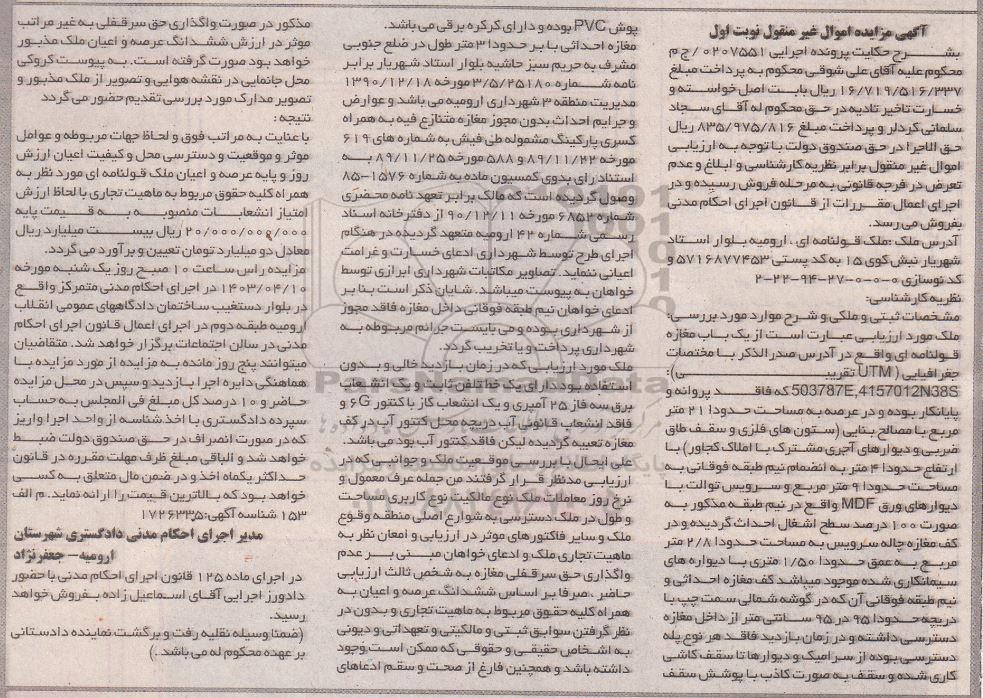 آگهی مزایده اموال غیر منقول نوبت اول
بشرح حکایت پرونده اجرایی ۰۲۰۷۵۵۱/ج م
محکوم علیه آقای علی شوقی محکوم به پرداخت مبلغ
۱۶/۷۱۹/۵۱۶/۳۳۷ ریال بابت اصل خواسته و
خسارت تاخیر تادیه در حق محکوم له آقای سجاد
سلمانی کردلر و پرداخت مبلغ ۸۳۵/۹۷۵/۸۱۶ ریال
حق الاجرا در حق صندوق دولت با توجه به ارزیابی
اموال غیر منقول برابر نظریه کارشناسی و ابلاغ و عدم
تعرض در فرجه قانونی به مرحله فروش رسیده و در
اجرای اعمال مقررات از قانون اجرای احکام مدنی
بفروش می رسد.
آدرس ملک :ملک قولنامه ای ، ارومیه بلوار استاد
شهریار نبش کوی ۱۵ به کد پستی ۵۷۱۶۸۷۷۴۵۳ و
کد نوسازی ۰-۰-۰-۲۷-۹۴-۲۲-۲
نظریه کارشناسی:
مشخصات ثبتی و ملکی و شرح موارد مورد بررسی:
ملک مورد ارزیابی عبارت است از یک باب مغازه
قولنامه ای واقع در آدرس صدر الذکر با مختصات
جغرافیایی ( UTM تقریبی):
503787E,4157012N38S که فاقد پروانه و
پایانکار بوده و در عرصه به مساحت حدودا ۲۱ متر
مربع با مصالح بنایی (ستون های فلزی و سقف طاق
ضربی و دیوارهای آجری مشترک با املاک مجاور) با
ارتفاع حدودا ۴ متر به انضمام نیم طبقه فوقانی به
مساحت حدودا ۹ متر مربع و سرویس توالت با
دیوارهای ورق MDF واقع در نیم طبقه مذکور به
صورت ۱۰۰ درصد سطح اشغال احداث گردیده و در
کف مغازه چاله سرویس به مساحت حدودا ۲/۸ متر
مربع به عمق حدودا ۱/۵۰ متری با دیواره های
سیمانکاری شده موجود میباشد کف مغازه احداثی و
نیم طبقه فوقانی آن که در گوشه شمالی سمت چپ با
دریچه حدودا ۹۵ در ۹۵ سانتی متر از داخل مغازه
دسترسی داشته و در زمان بازدید فاقد هر نوع پله
دسترسی بوده از سرامیک و دیوار ها تا سقف کاشی
کاری شده و سقف به صورت کاذب با پوشش سقف
پوش PVC بوده و دارای کرکره برقی می باشد.
مغازه احداثی با بر حدودا ۳ متر طول در ضلع جنوبی
مشرف به حریم سبز حاشیه بلوار استاد شهریار برابر
نامه شماره ۳/۵/۲۵۱۸۰ مورخه ۱۳۹۰/۱۲/۱۸
مدیریت منطقه ۳ شهرداری ارومیه می باشد و عوارض
و جرایم احداث بدون مجوز مغازه متنازع فیه به همراه
کسری پارکینگ مشموله طی فیش به شماره های ۶۱۹
مورخه ۸۹/۱۱/۲۲ و ۵۸۸ مورخه ۸۹/۱۱/۲۵ به
استناد رای بدوی کمسیون ماده به شماره ۱۵۷۶-۸۵
وصول گردیده است که مالک برابر تعهد نامه محضری
شماره ۶۸۵۲ مورخه ۹۰/۱۲/۱۱ از دفترخانه اسناد
رسمی شماره ۴۲ ارومیه متعهد گردیده در هنگام
اجرای طرح توسط شهرداری ادعای خسارت و غرامت
اعیانی ننماید. تصاویر مکاتبات شهرداری ابرازی توسط
خواهان به پیوست میباشد. شایان ذکر است بنابر
ادعای خواهان نیم طبقه فوقانی داخل مغازه فاقد مجوز
از شهرداری بوده و می بایست جرائم مربوطه به
شهرداری پرداخت و یا تخریب گردد.
ملک مورد ارزیابی که در زمان بازدید خالی و بدون
استفاده بود دارای یک خط تلفن ثابت و یک انشعاب
برق سه فاز ۲۵ آمپری و یک انشعاب گاز با کنتور G۶ و
فاقد انشعاب قانونی آب دریچه محل کنتور آب در کف
مغازه تعبیه گردیده لیکن فاقد کنتور آب بود می باشد.
علی ایحال با بررسی موقعیت ملک و جوانبی که در
ارزیابی مدنظر قرار گرفتند من جمله عرف معمول و
نرخ روز معاملات ملک نوع مالکیت نوع کاربری مساحت
و طول در ملک دسترسی به شوارع اصلی منطقه وقوع
ملک و سایر فاکتور های موثر در ارزیابی و امعان نظر به
ماهیت تجاری ملک و ادعای خواهان مبنی بر عدم
واگذاری حق سرقفلی مغازه به شخص ثالث ارزیابی
حاضر ، صرفا بر اساس ششدانگ عرصه و اعیان به
همراه کلیه حقوق مربوط به ماهیت تجاری و بدون در
نظر گرفتن سوابق ثبتی و مالکیتی و تعهداتی و دیونی
به اشخاص حقیقی و حقوقی که ممکن است وجود
داشته باشد و همچنین فارغ از صحت و سقم ادعاهای
مذکور در صورت واگذاری حق سرقفلی به غیر مراتب
موثر در ارزش ششدانگ عرصه و اعیان ملک مذبور
خواهد بود صورت گرفته است. به پیوست کروکی
محل جانمایی در نقشه هوایی و تصویر از ملک مذبور و
تصویر مدارک مورد بررسی تقدیم حضور می گردد
نتیجه :
با عنایت به مراتب فوق و لحاظ جهات مربوطه و عوامل
موثر و موقعیت و دسترسی محل و کیفیت اعیان ارزش
روز و پایه عرصه و اعیان ملک قولنامه ای مورد نظر به
همراه کلیه حقوق مربوط به ماهیت تجاری با لحاظ ارزش
امتیاز انشعابات منصوبه به قیمت پایه
۲۰/۰۰۰/۰۰۰/۰۰۰ ریال بیست میلیارد ریال
معادل دو میلیارد تومان تعیین و برآورد می گردد.
مزایده راس ساعت ۱۰ صبح روز یک شنبه مورخه
۱۴۰۳/۰۴/۱۰ در اجرای احکام مدنی متمرکز واقع
در بلوار دستغیب ساختمان دادگاههای عمومی انقلاب
ارومیه طبقه دوم در اجرای اعمال قانون اجرای احکام
مدنی در سالن اجتماعات برگزار خواهد شد. متقاضیان
میتوانند پنج روز مانده به مزایده از مورد مزایده با
هماهنگی دایره اجرا بازدید و سپس در محل مزایده
حاضر و ۱۰ درصد کل مبلغ فی المجلس به حساب
سپرده دادگستری با اخذ شناسه از واحد اجرا واریز
که در صورت انصراف در حق صندوق دولت ضبط
خواهد شد و الباقی مبلغ ظرف مهلت مقرره در قانون
حداکثر یکماه اخذ و در ضمن مال متعلق به کسی
خواهد بود که بالاترین قیمت را ارائه نماید. م الف
۱۵۳ شناسه آگهی:۱۷۲۶۳۳۵
مدیر اجرای احکام مدنی دادگستری شهرستان
ارومیه- جعفرنژاد
در اجرای ماده ۱۲۵ قانون اجرای احکام مدنی با حضور
دادورز اجرایی آقای اسماعیل زاده بفروش خواهد
رسید.
(ضمنا وسیله نقلیه رفت و برگشت نماینده دادستانی
بر عهده محکوم له می باشد .)